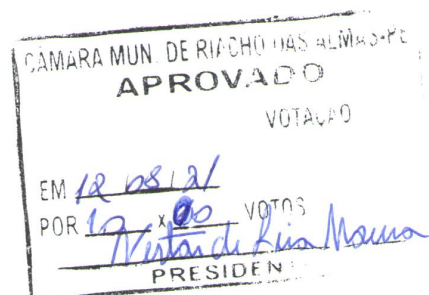 CÂMARA MUN. DE RIACHO DAS ALMAS-PE
APROVADO
VOTAÇÃO
EM 12 08 21
POR 10 x 00 VOTOS
de Lira Moura
PRESIDEN